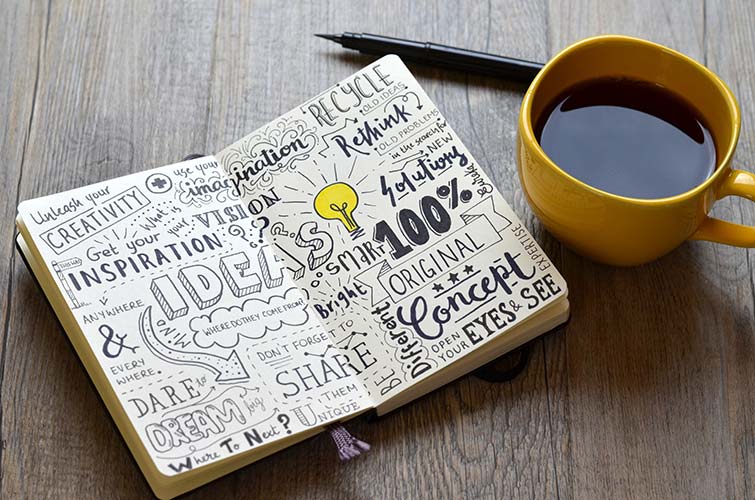 Unleash your
CREATIVITY
use your
imagination
What is
your
VISION
?
Get your
INSPIRATION
ANYWHERE
&
EVERY
WHERE.
IDEAS
MIND
WHERE DO THEY COME FROM?
DARE to
DREAM big
Where To Next?
DON'T FORGET
TO
SHARE
THEM
UNIQUE
RECYCLE
OLD IDEAS
Rethink
OLD PROBLEMS
in the search for
NEW
Solutions
Be
SMART
Bright
100%
ORIGINAL
EXPERTISE
Concept
BE
Different
OPEN
YOUR
EYES & SEE